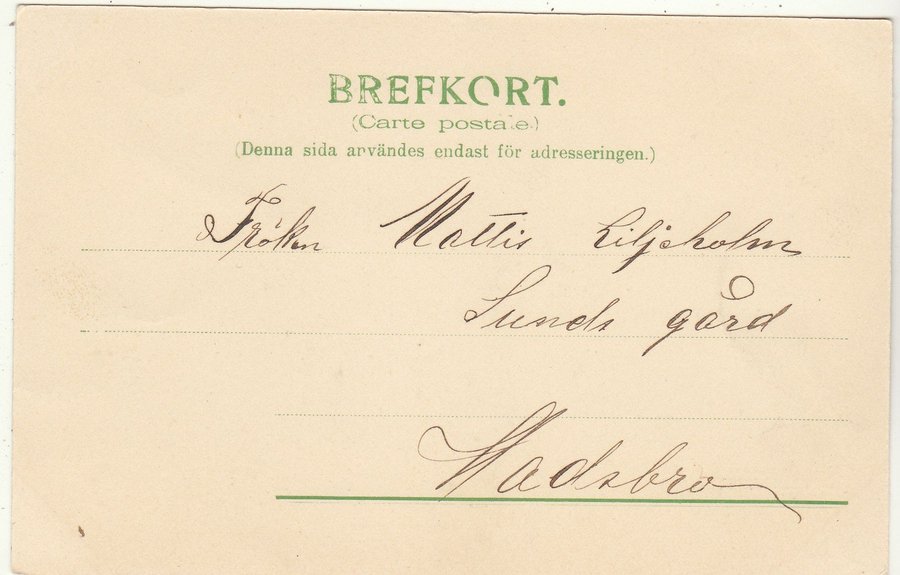 BREFKORT.
(Carte postale.)
(Denna sida användes endast för adresseringen.)
Fröken Mattis Liljeholm
Sunds gård
Wadsbro